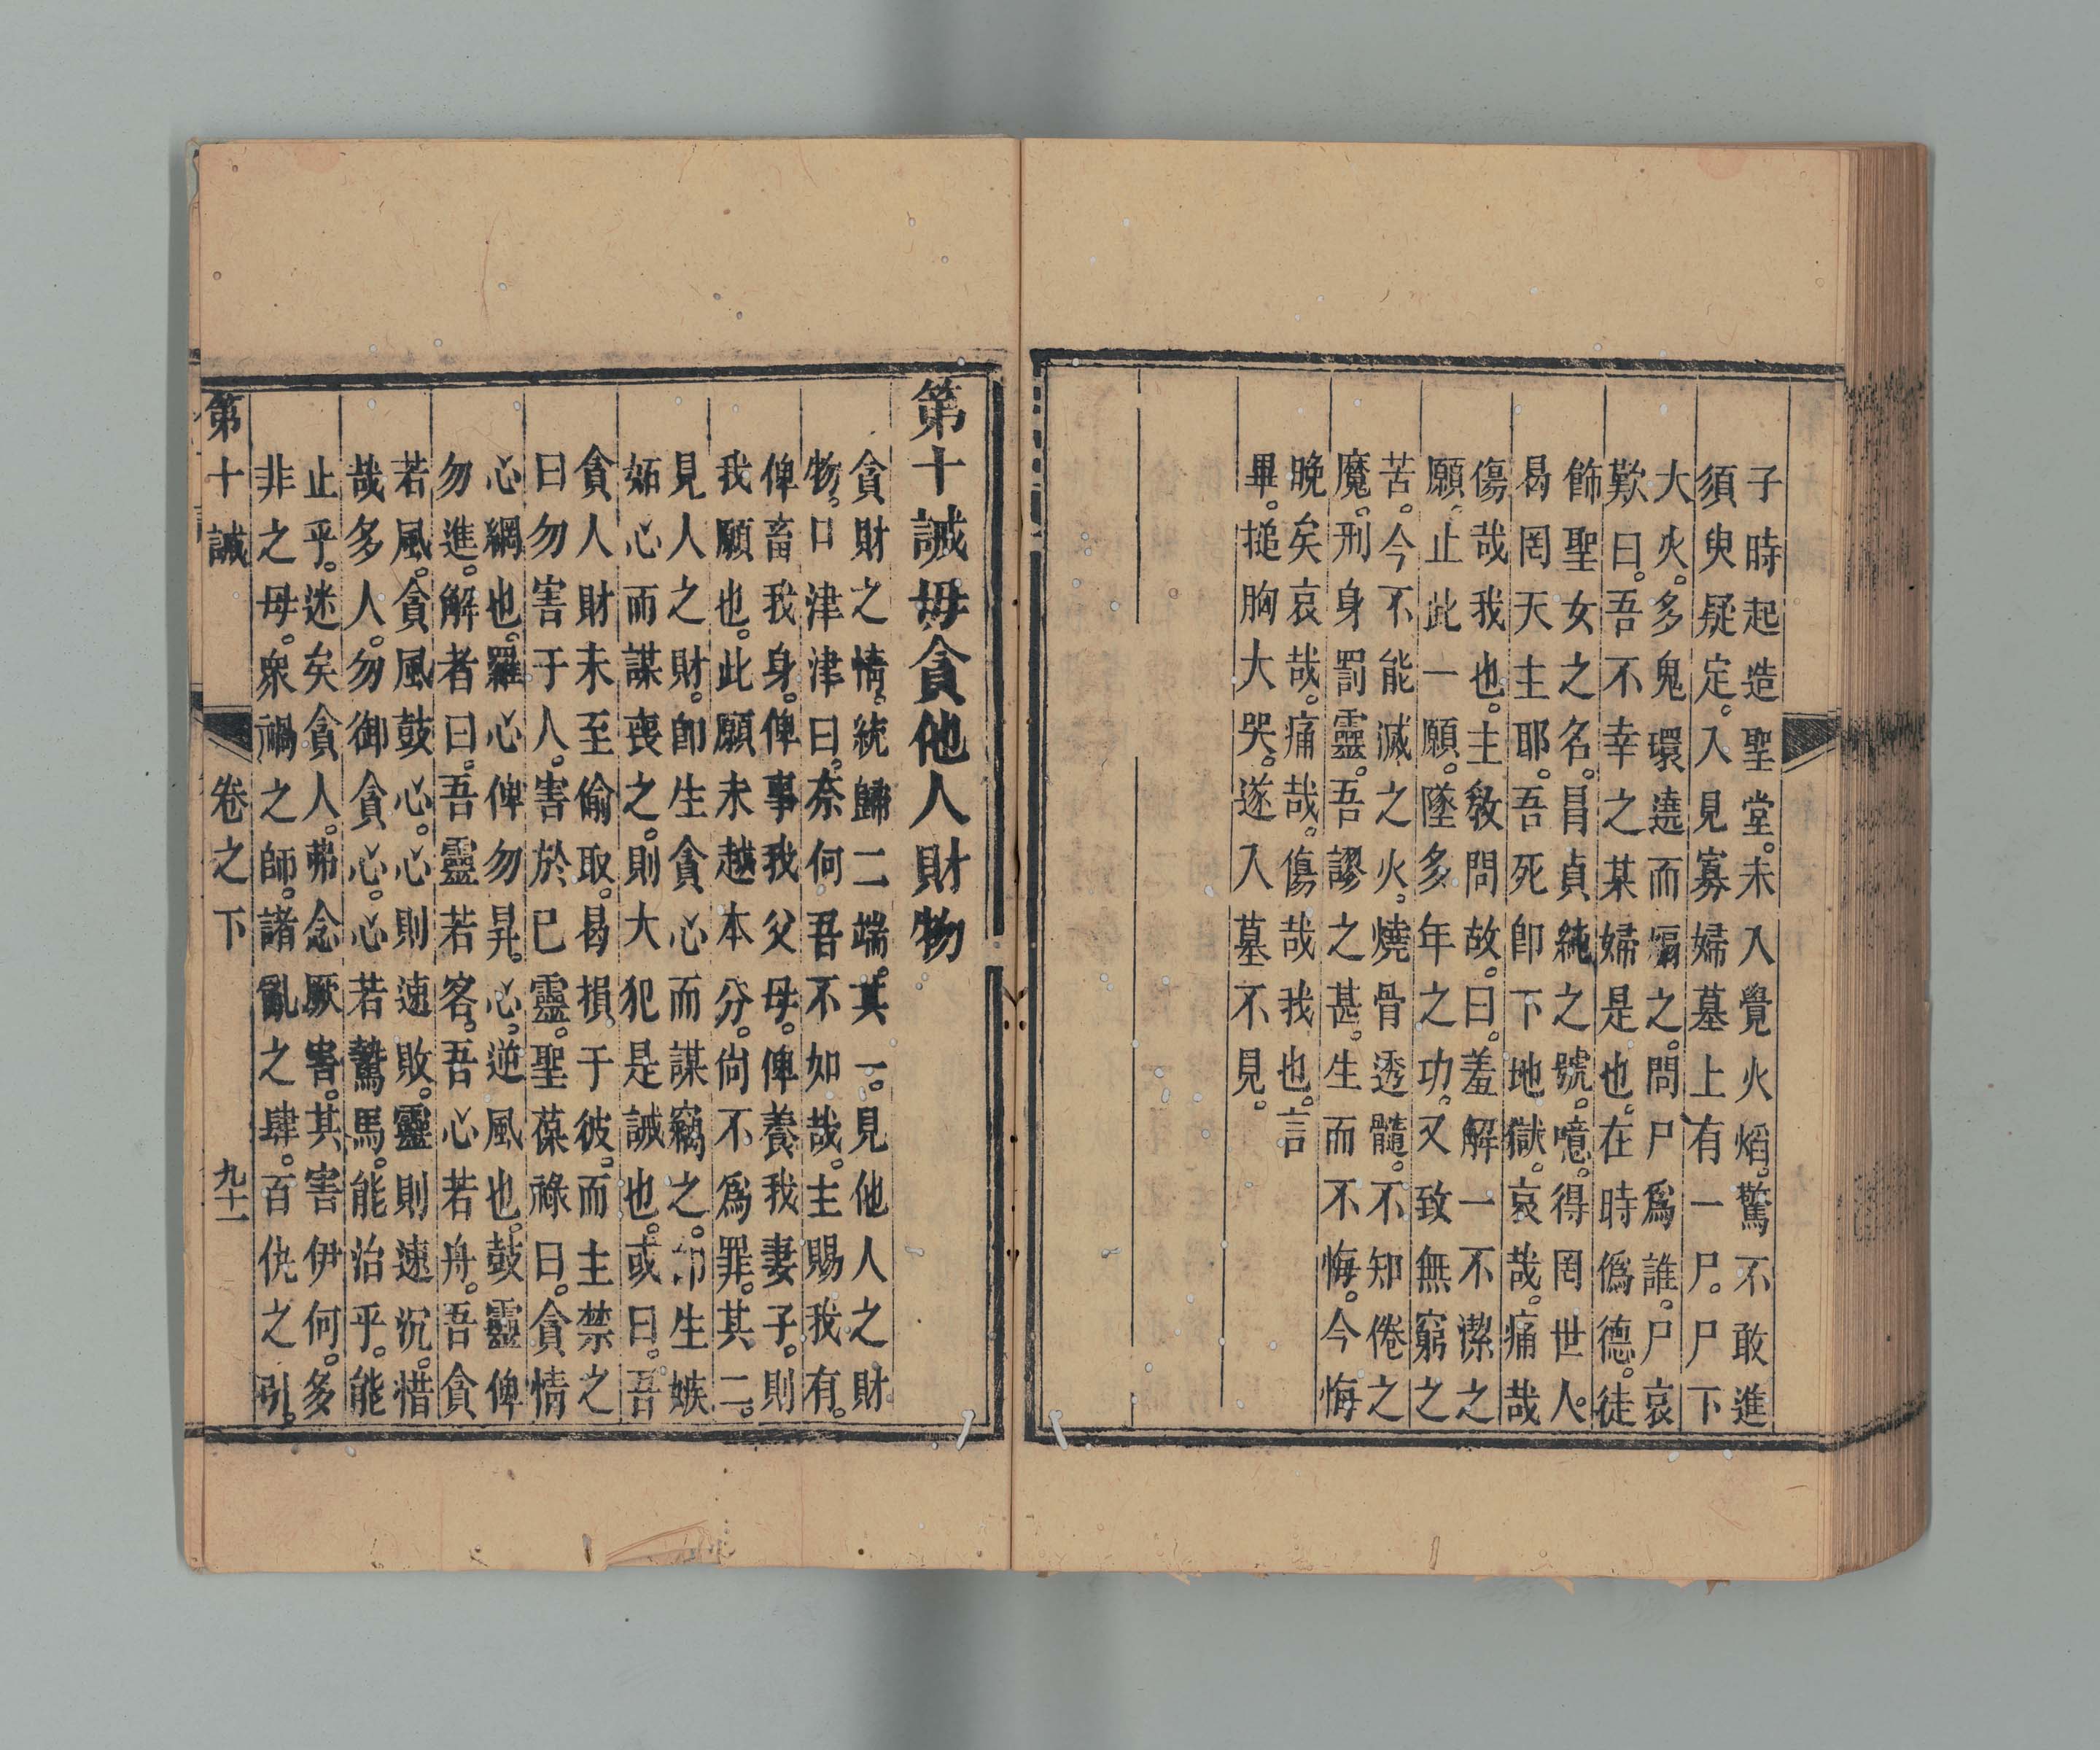 子時起造聖堂。未入覺火熖。驚不敢進
須臾疑定。入見寡婦墓上有一尸。尸下
大火。多鬼環遶而之。問尸爲誰。尸哀
歎曰。吾不幸之某婦是也。在時僞德。徒
飾聖女之名。冒貞純之號。噫。得罔世人。
曷罔天主耶。吾死卽下地獄。哀哉。痛哉
傷哉我也。主教問故。曰。羞解一不潔之
願。止此一願。墜多年之功。又致無窮之
苦。今不能滅之火。燒骨透髓。不知倦之
魔。刑身罰靈。吾謬之甚。生而不悔。今悔
晚矣哀哉。痛哉。傷哉我也。言
畢。搥胸大哭。遂入墓不見。
第十誡毋貪他人財物
貪財之情。統歸二端。其一。見他人之財
物。口津津曰。奈何吾不如哉。主賜我有。
俾畜我身。俾事我父母。俾養我妻子。則
我願也。此願未越本分。尙不爲罪。其二。
見人之財。卽生貪心而謀竊之。卽生嫉
妬心而謀喪之。則大犯是誡也。或曰。吾
貪人財未至偷取。曷損于彼。而主禁之
曰勿害于人。害於已靈。聖葆祿曰。貪情
心網也。羅心俾勿昇。心逆風也。鼓靈俾
勿進。解者曰。吾靈若客。吾心若舟。吾貪
若風。貪風鼓心。心則速敗。靈則速沉。惜
哉多人。勿御貪心。心若驁馬。能治乎。能
止乎。迷矣貪人。弗念厥害。其害伊何。多
非之母。衆禍之師。諸亂之肆。百仇之引。
第十誡　卷之下　九十一